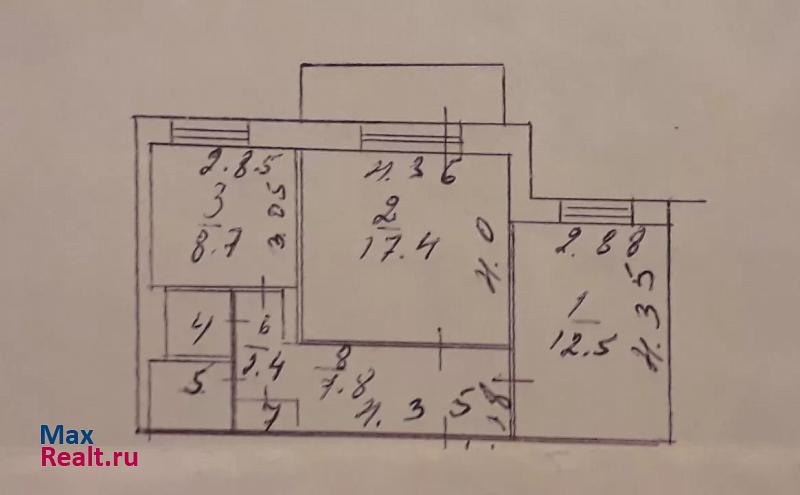 2.85
3
8.7
3.05
4.36
2
17.4
4.0
2.88
1
12.5
4.35
4
5
6
2.4
7
8
7.8
4.35
1.8
Max
Realt.ru